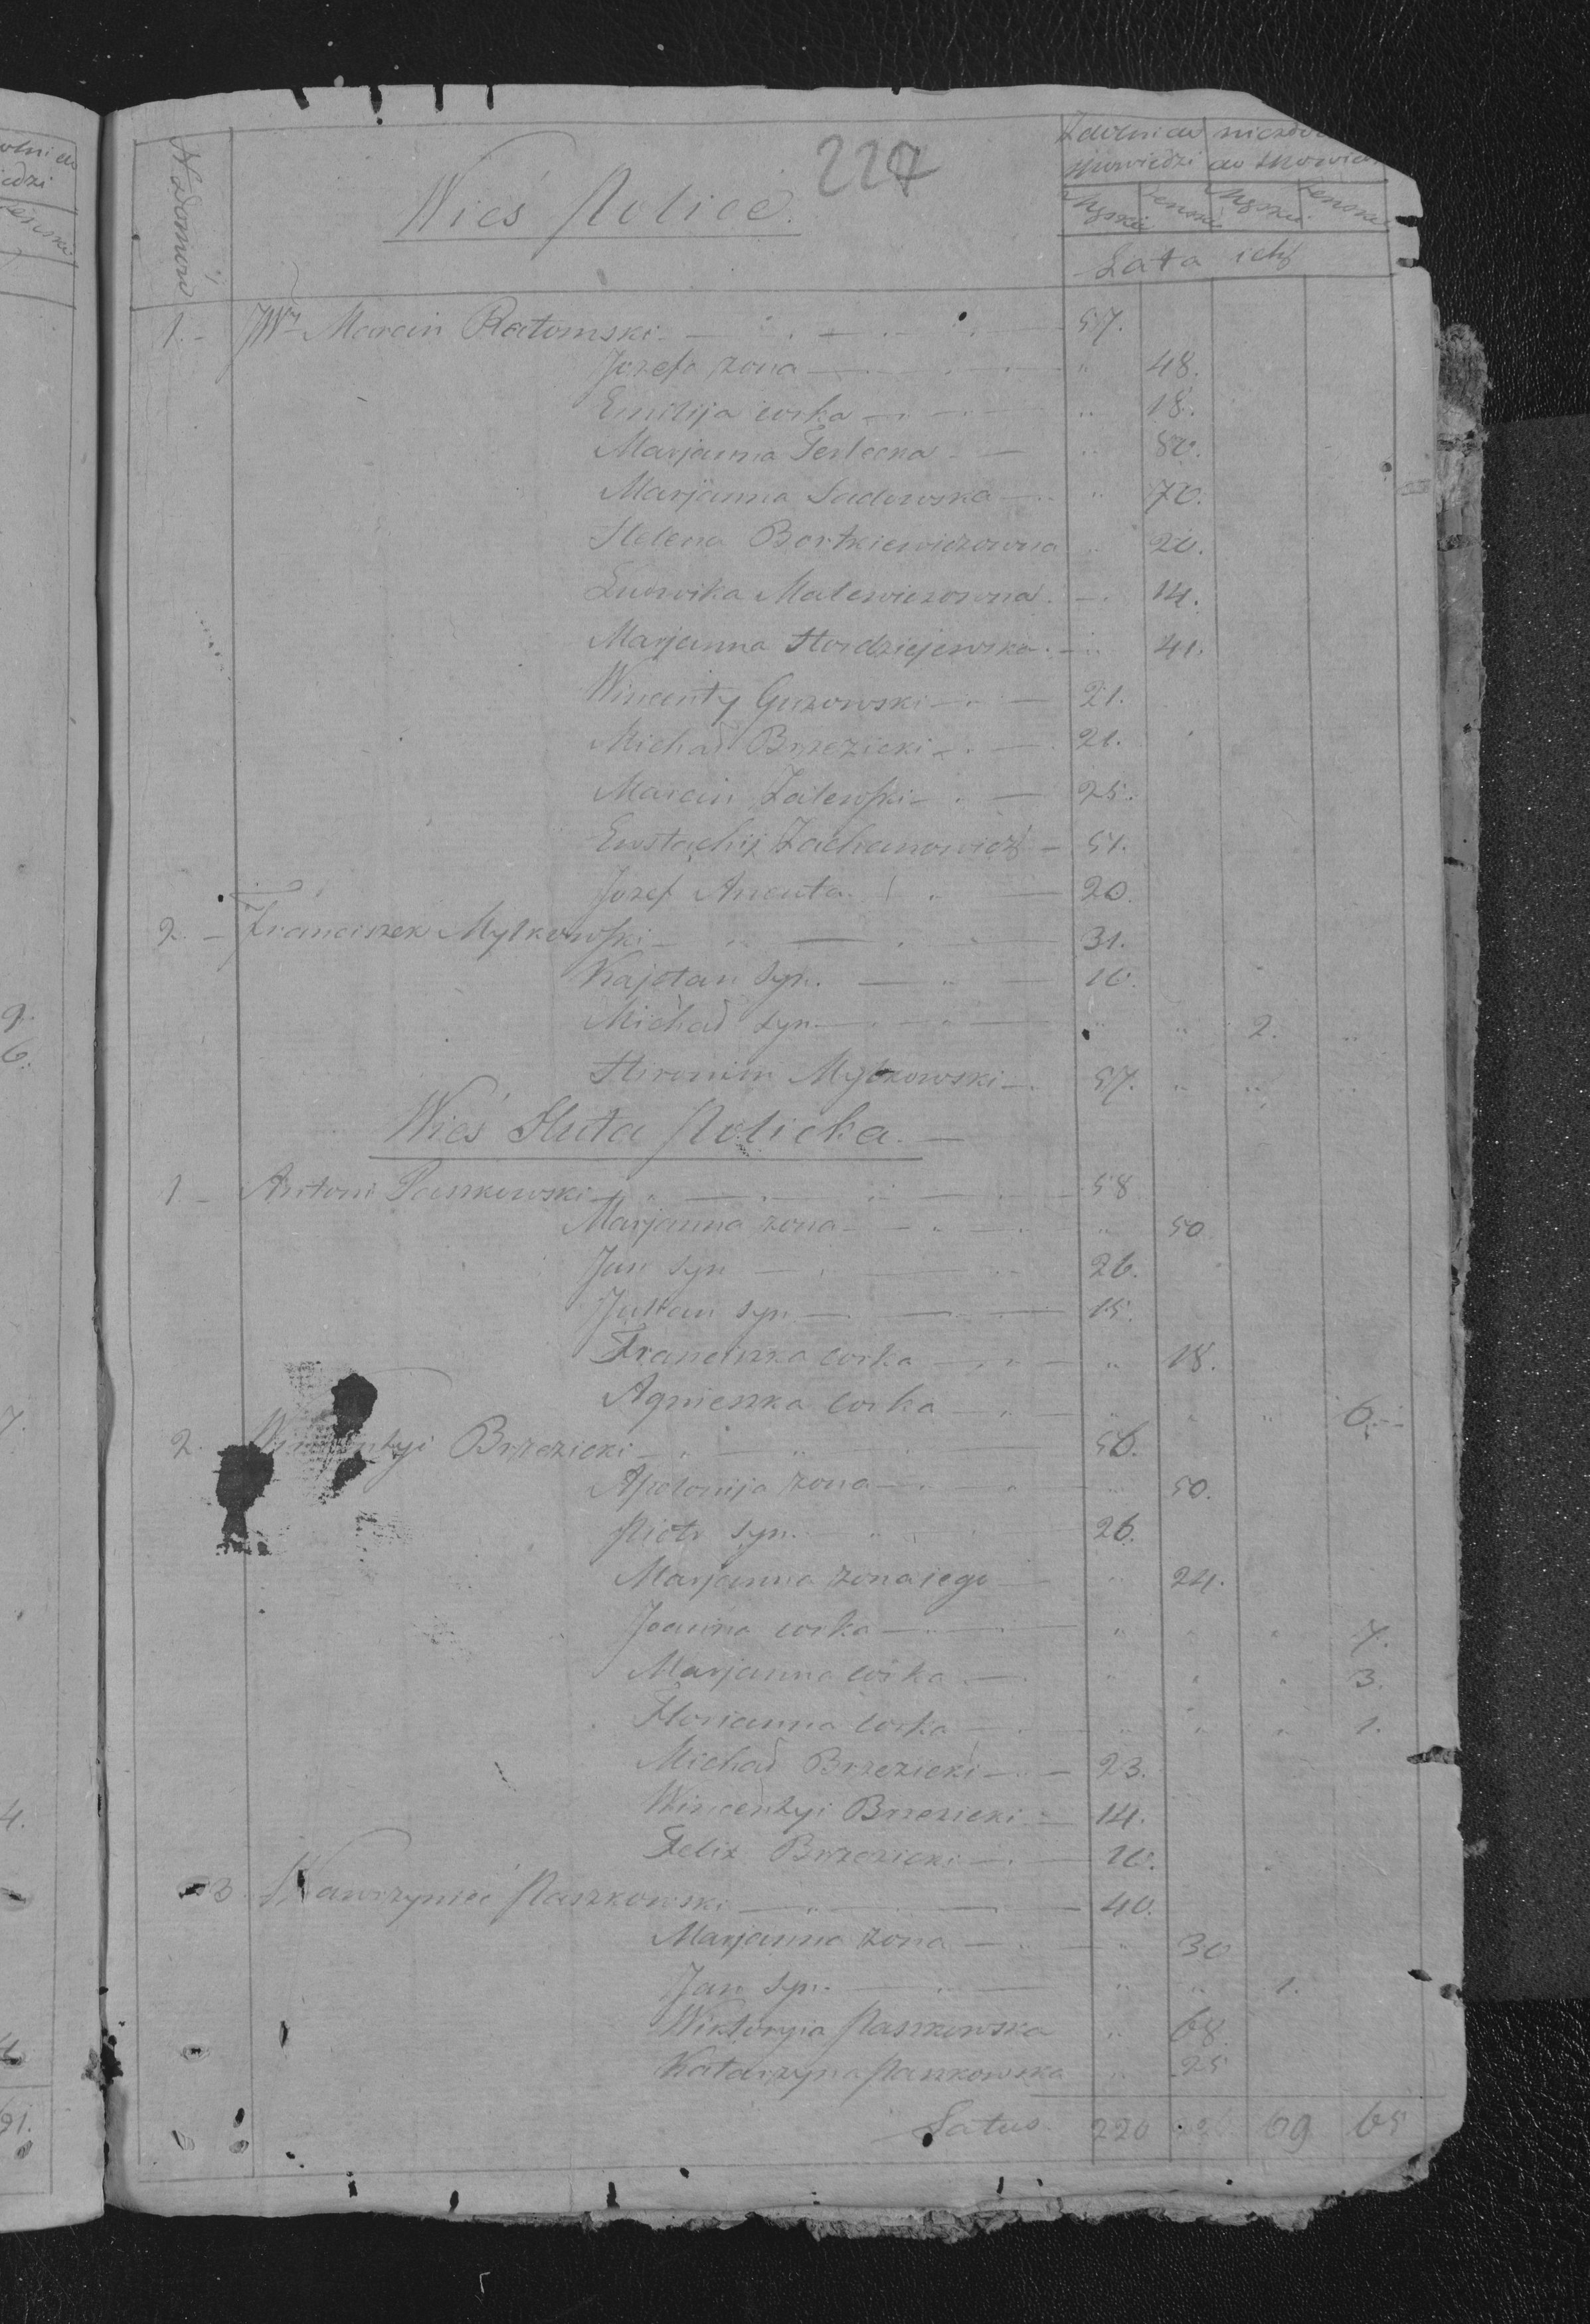 227
Wieś Police.
N domow
Zdolni do spowiedzi
do spowied
Męzki Męzki
Lata ich
1. - JWy Marcin Ratomski. 57.
Jozefa zona 48.
Emilija corka 18.
Marjanna Terlecka 50.
Marjanna Sadowska 70.
Helena Bortkiewiczowna 20.
Ludwika Malewiczowna 14.
Marjanna Hordziejewska 41.
Wincenty Guzowski 21.
Michał Brzezicki 21.
Marcin Zalewski 25.
Ewstachij Zachanowicz 51.
Jozef 20.
2. - Franciszek Mylkowski 31.
Kajetan syn. 10.
Michał syn 2.
Hironim Mylkowski 57.
Wieś Huta Policka.
1 - Antoni Pankowski 58
Marjanna zona 50
Jan syn 26.
Julian syn 15.
Franciszka corka 18.
Agnieszka corka 6.
2. Brzezicki 56.
Apolonija zona 50.
Piotr syn. 26.
Marjanna zona jego 24.
Joanna corka 7.
Marjanna corka 3.
Florianna corka 1.
Michał Brzezicki 23.
Wincentyi Brzezicki 14.
Felix Brzezicki 10.
3 Wawrzyniec Paszkowski 40.
Marjanna zona 30
Jan syn. 1.
Wiktoryia Paszkowska 68.
Katarzyna Paszkowska 25
Latus. 220 69 65